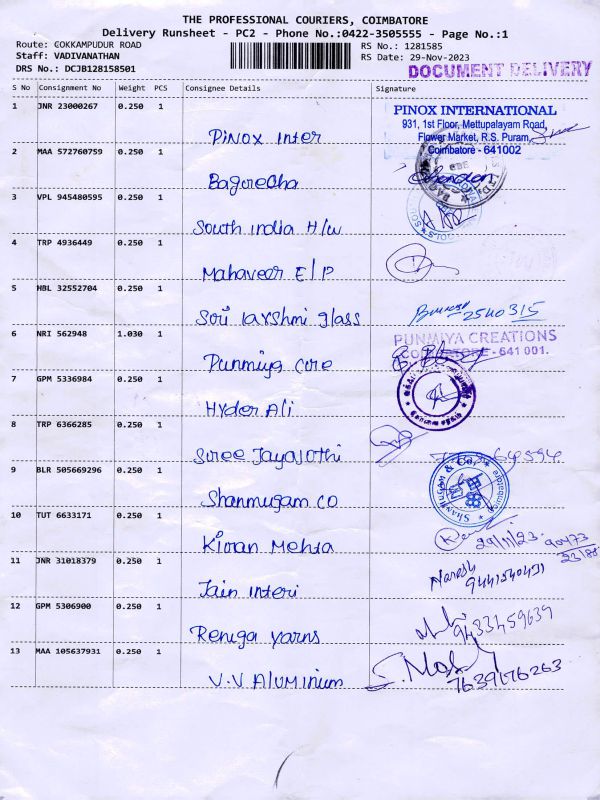 THE PROFESSIONAL COURIERS, COIMBATORE
Delivery Runsheet - PC2 - Phone No.:0422-3505555 - Page No.:1
Route: GOKKAMPUDUR ROAD
Staff: VADIVANATHAN
DRS No.: DCJB128158501
RS No.: 1281585
RS Date: 29-Nov-2023
DOCUMENT DELIVERY
S No Consignment No Weight PCS Consignee Details Signature
1 JNR 23000267 0.250 1
Pinox Inter
PINOX INTERNATIONAL
931, 1st Floor, Mettupalayam Road,
Flower Market, R.S. Puram,
Coimbatore - 641002
2 MAA 572760759 0.250 1
Bagrecha
3 VPL 945480595 0.250 1
South india H/w
4 TRP 4936449 0.250 1
Mahaveer E/P
5 NBL 32552704 0.250 1
Sri lakshmi glass
2540315
6 NRI 562948 1.030 1
Punmiya Cre
PUNMIYA CREATIONS
COIMBATORE - 641 001.
7 GPM 5336984 0.250 1
Hyder Ali
8 TRP 6366285 0.250 1
Sree Jayajothi
9 BLR 505669296 0.250 1
Shanmugam co
10 TUT 6633171 0.250 1
Kiran Mehta
29/11/23
11 JNR 31018379 0.250 1
Jain Interi
Naresh
12 GPM 5306900 0.250 1
Renuga yarns
9433459639
13 MAA 105637931 0.250 1
V.V Aluminium
7639176263